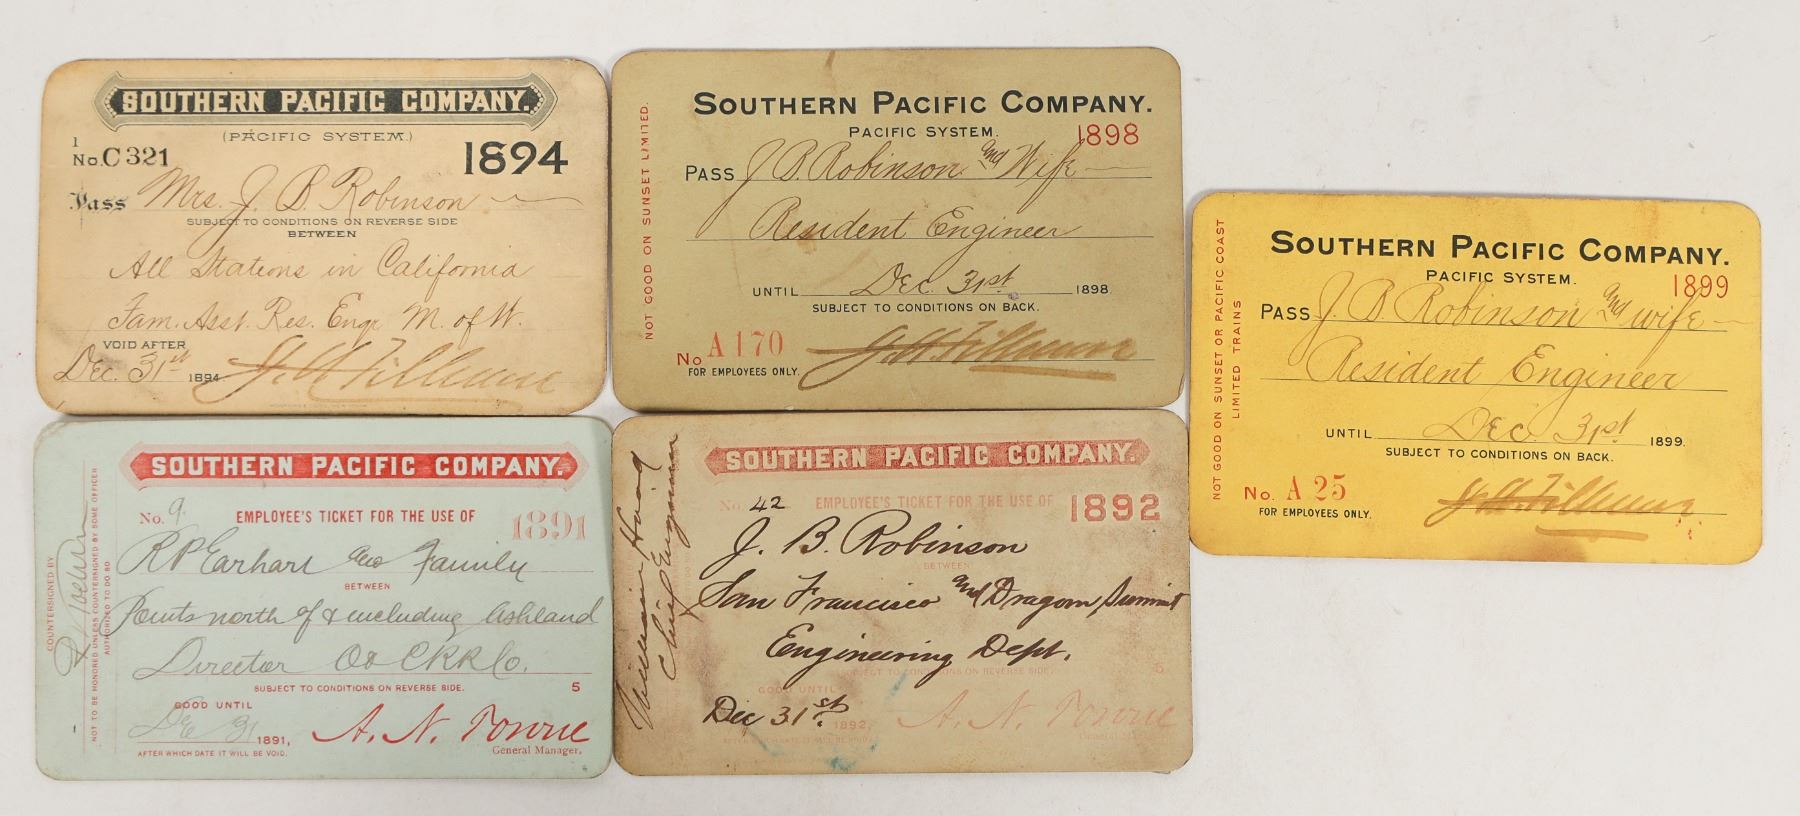 SOUTHERN PACIFIC COMPANY.
(PACIFIC SYSTEM.)
1
No. C 321
1894
Pass Mrs. J. B. Robinson
SUBJECT TO CONDITIONS ON REVERSE SIDE
BETWEEN
All Stations in California
Fam. Asst. Res. Engr M. of W.
VOID AFTER
Dec. 31st 1894
SOUTHERN PACIFIC COMPANY.
PACIFIC SYSTEM.
1898
PASS J B. Robinson and Wife
Resident Engineer
UNTIL Dec. 31st 1898.
SUBJECT TO CONDITIONS ON BACK.
No A 170
FOR EMPLOYEES ONLY.
NOT GOOD ON SUNSET LIMITED.
SOUTHERN PACIFIC COMPANY.
PACIFIC SYSTEM.
1899
PASS J. B. Robinson and wife
Resident Engineer
UNTIL Dec. 31st 1899.
SUBJECT TO CONDITIONS ON BACK.
No. A 25
FOR EMPLOYEES ONLY.
NOT GOOD ON SUNSET OR PACIFIC COAST
LIMITED TRAINS
SOUTHERN PACIFIC COMPANY.
No. 9.
EMPLOYEE'S TICKET FOR THE USE OF
1891
R P Earhart and Family
BETWEEN
Points north of & including Ashland
Director O & C R R Co.
SUBJECT TO CONDITIONS ON REVERSE SIDE.
5
GOOD UNTIL
Dec 31 1891,
A. N. Towne
General Manager.
AFTER WHICH DATE IT WILL BE VOID.
COUNTERSIGNED BY
NOT TO BE HONORED UNLESS COUNTERSIGNED BY SOME OFFICER
AUTHORIZED TO DO SO
SOUTHERN PACIFIC COMPANY.
No. 42
EMPLOYEE'S TICKET FOR THE USE OF
1892
J. B. Robinson
BETWEEN
San Francisco and Dragoon Summit
Engineering Dept.
SUBJECT TO CONDITIONS ON REVERSE SIDE.
5
GOOD UNTIL
Dec 31st. 1892,
A. N. Towne
General Manager.
AFTER WHICH DATE IT WILL BE VOID.
William Hood
Chief Engineer